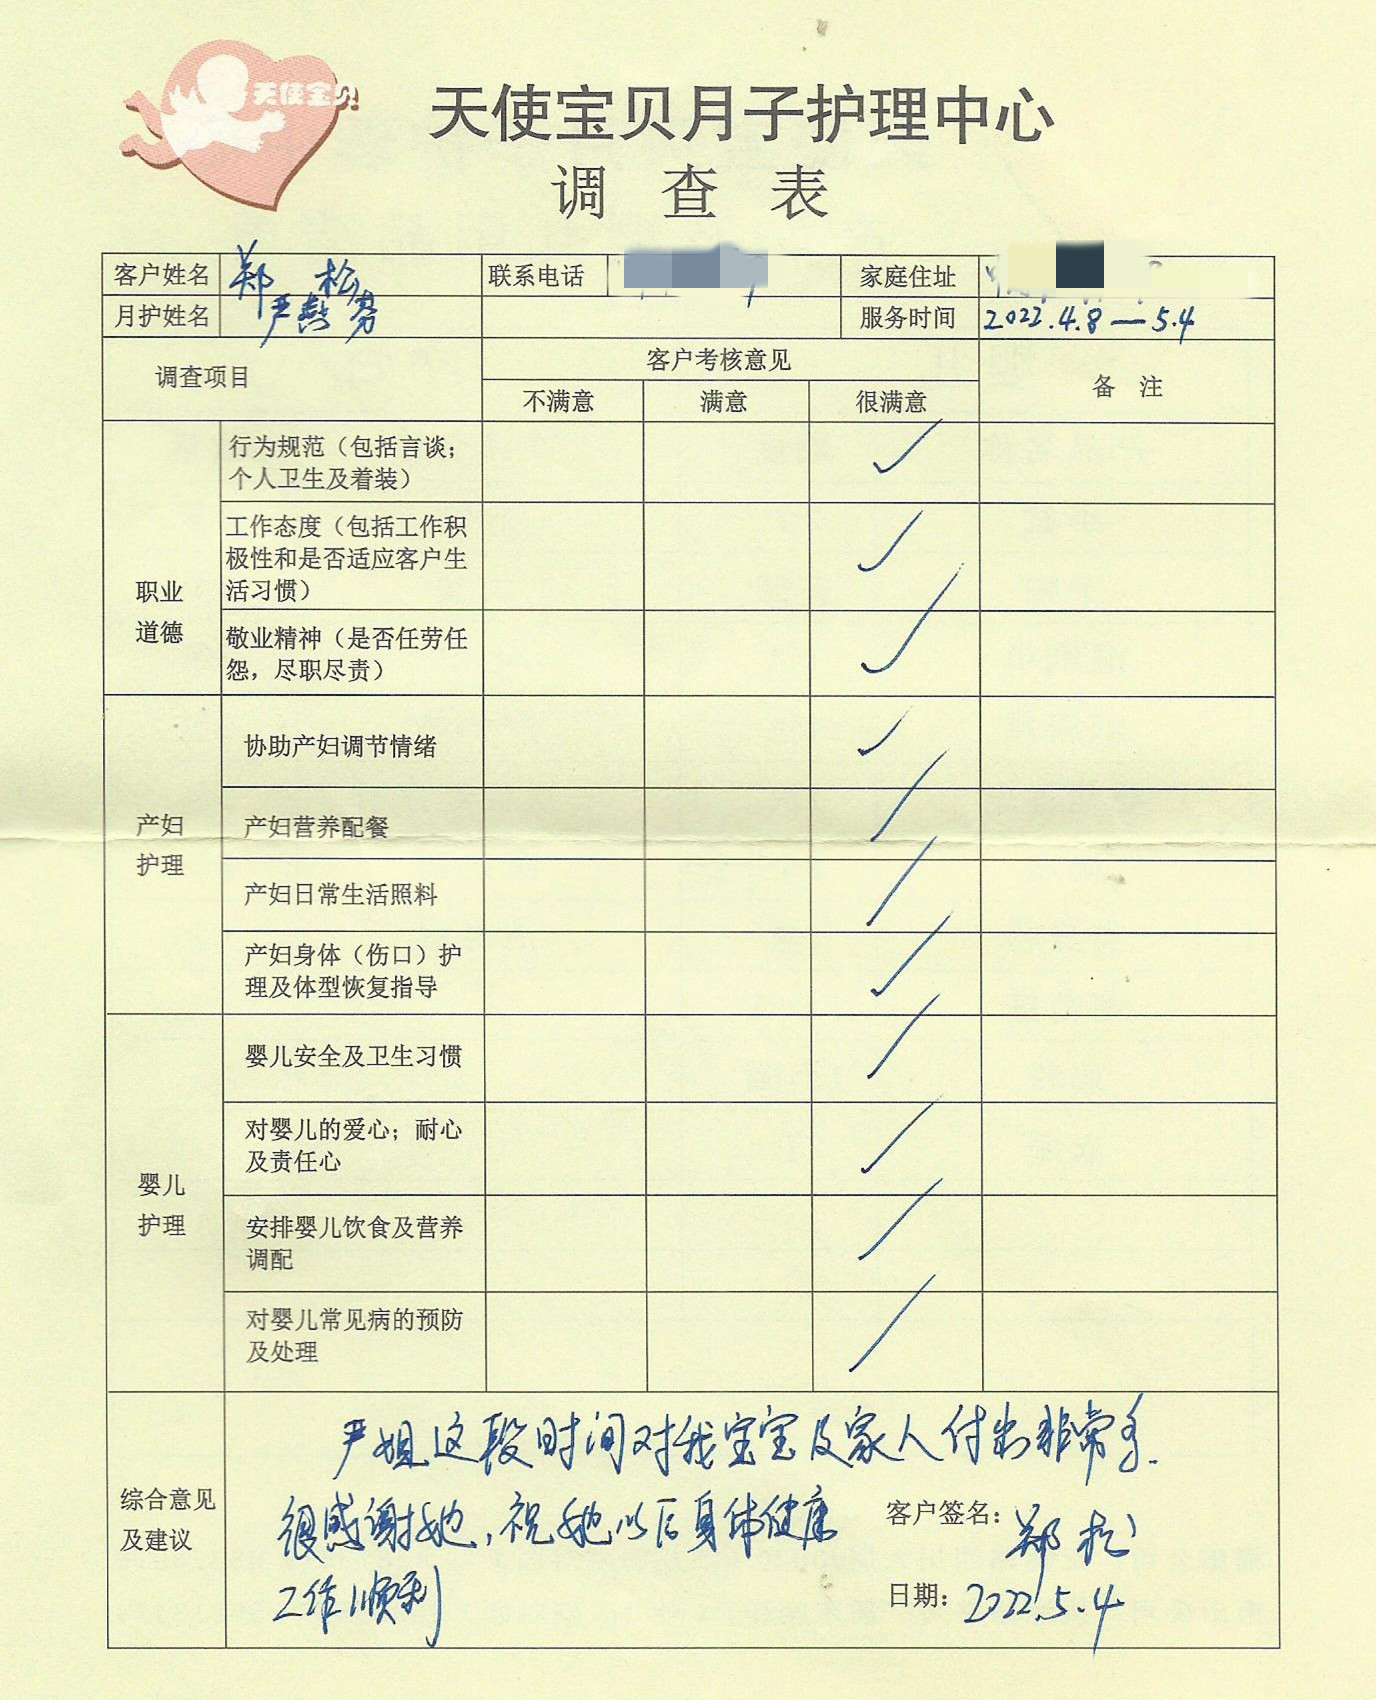 天使宝贝
天使宝贝月子护理中心
调 查 表
客户姓名 郑 松 联系电话 家庭住址
月护姓名 严 芬 服务时间 2022.4.8—5.4
调查项目 客户考核意见 备 注
不满意 满意 很满意
职业
道德
行为规范（包括言谈；
个人卫生及着装）
✓
工作态度（包括工作积
极性和是否适应客户生
活习惯）
✓
敬业精神（是否任劳任
怨，尽职尽责）
✓
产妇
护理
协助产妇调节情绪 ✓
产妇营养配餐 ✓
产妇日常生活照料 ✓
产妇身体（伤口）护
理及体型恢复指导
✓
婴儿
护理
婴儿安全及卫生习惯 ✓
对婴儿的爱心；耐心
及责任心
✓
安排婴儿饮食及营养
调配
✓
对婴儿常见病的预防
及处理
✓
综合意见
及建议
严姐这段时间对我宝宝及家人付出非常多.
很感谢她，祝她以后身体健康
工作顺利
客户签名：郑松
日期：2022.5.4